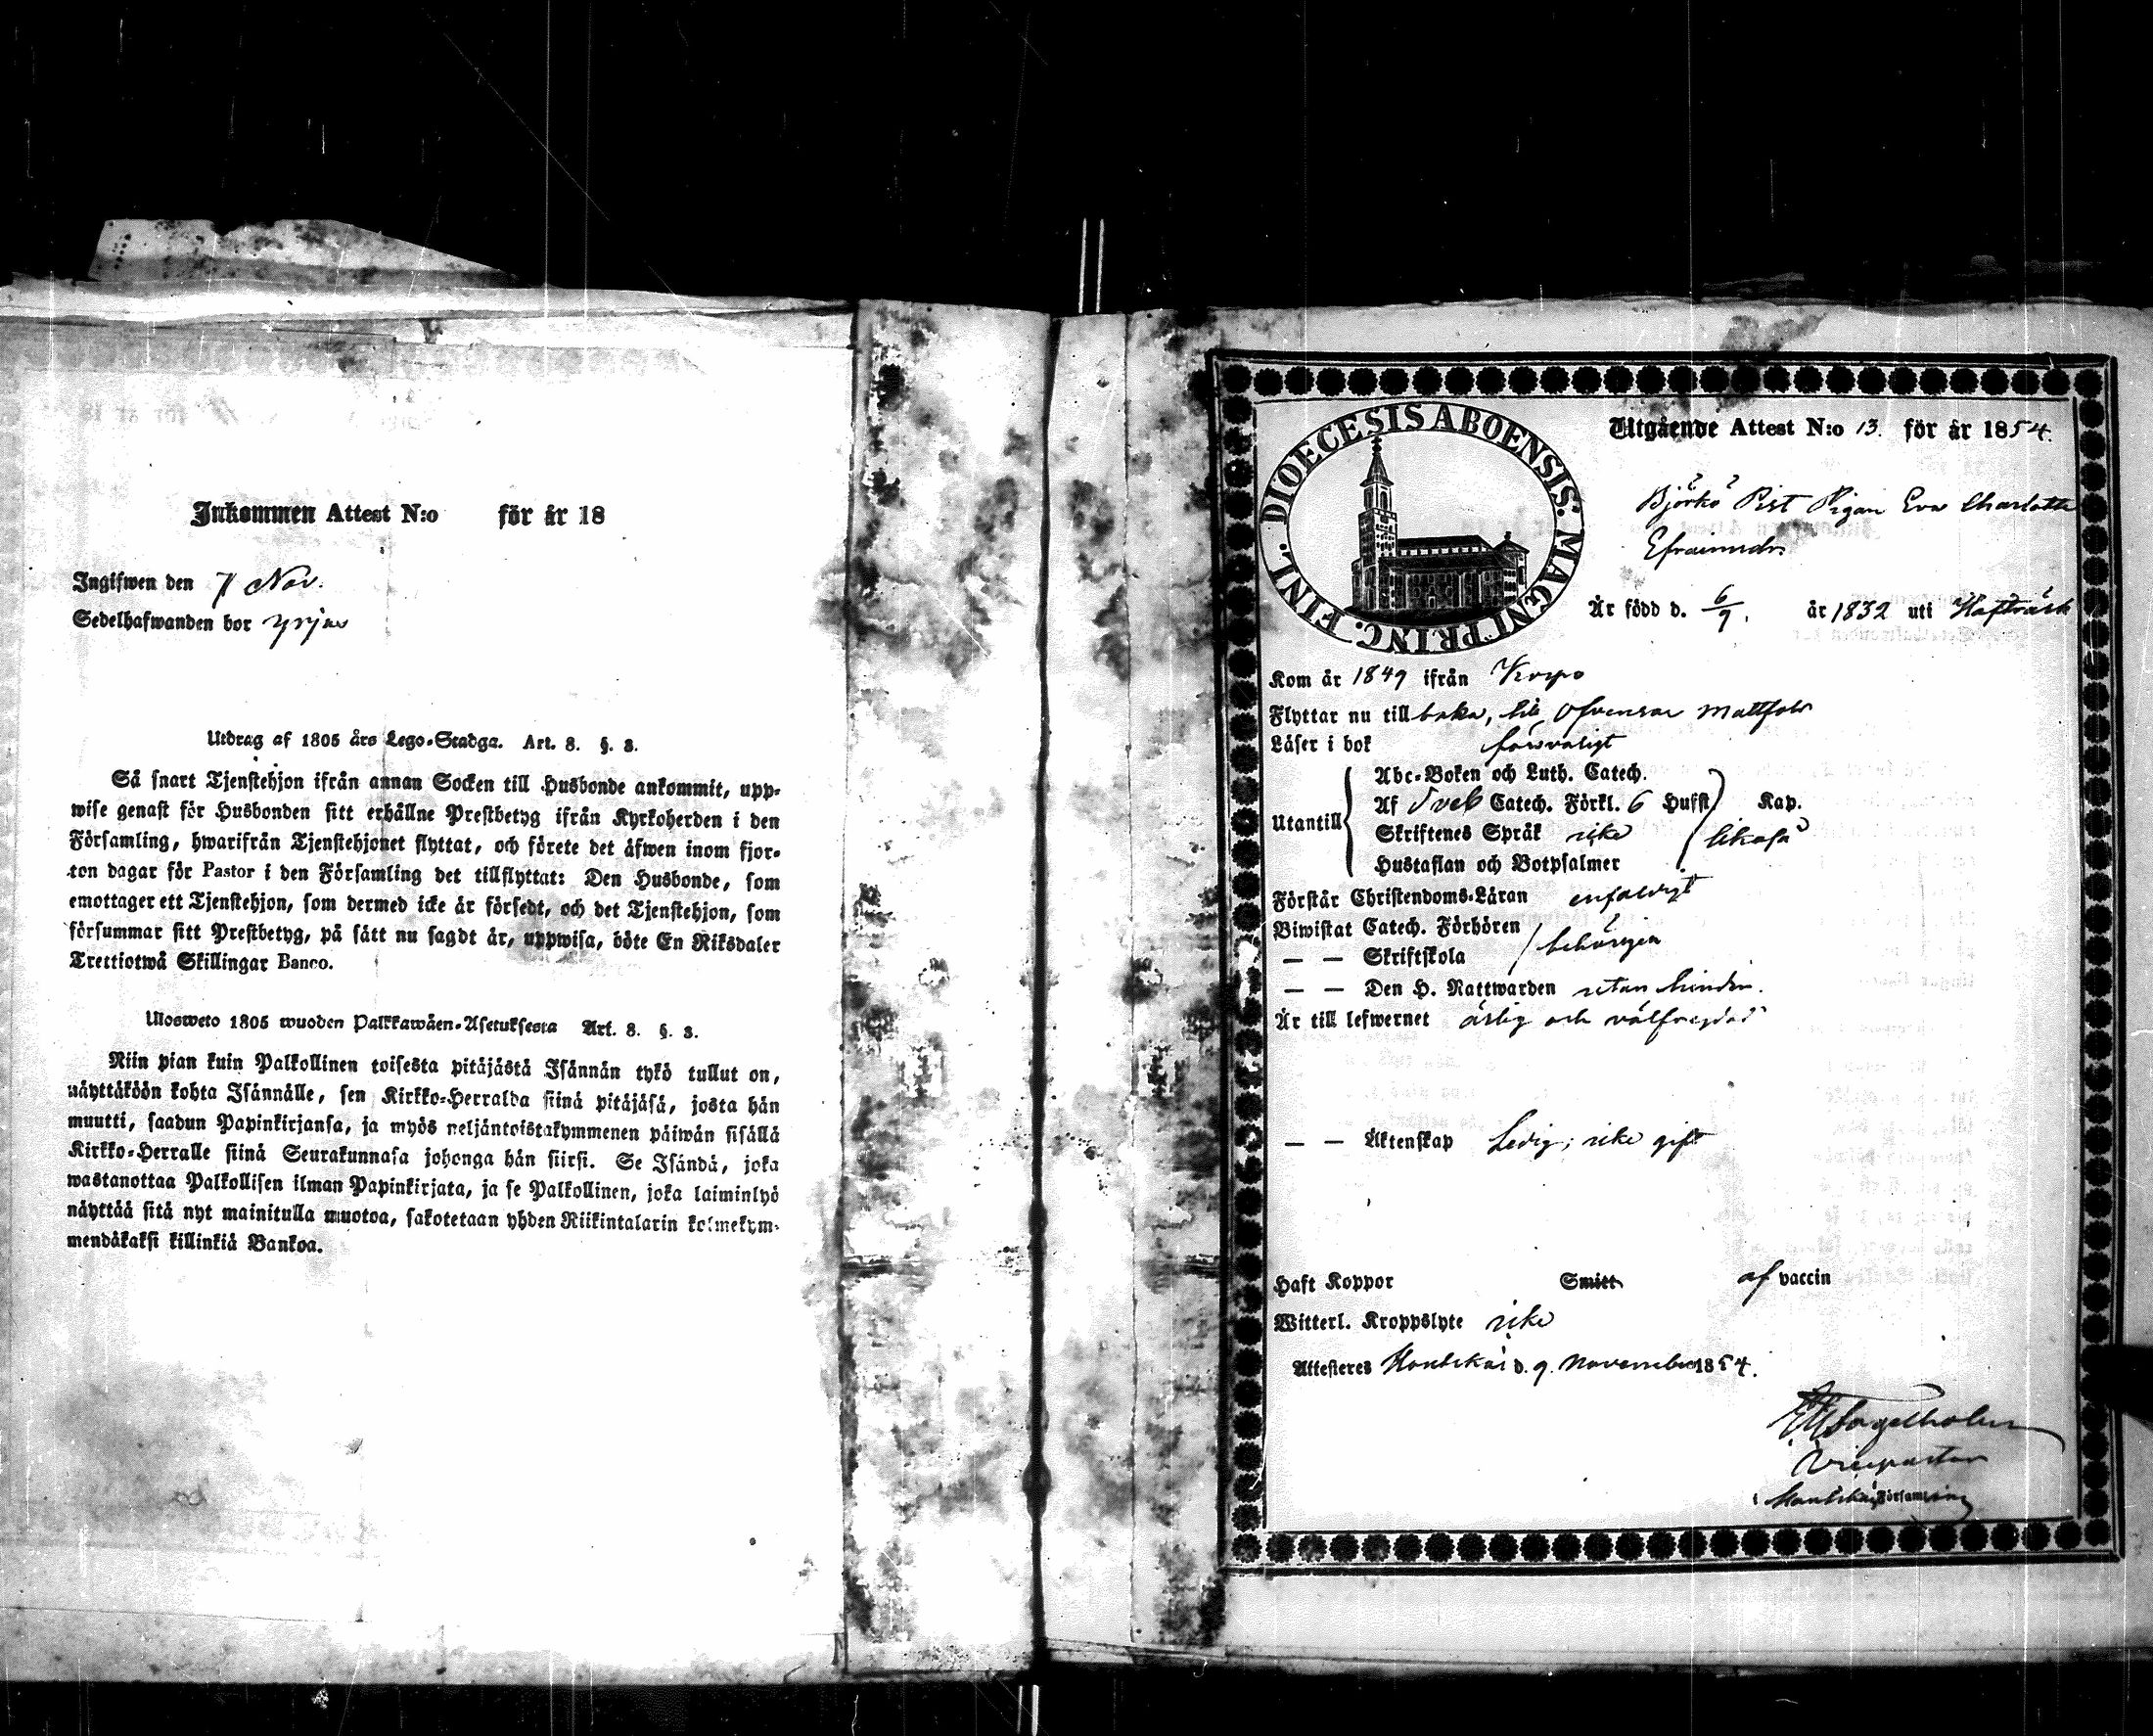 Inkommen Attest N:o för år 18
Ingifwen den 7 Nov.
Sedelhafwanden bor
Utdrag af 1805 års Lego-Stadga. Art. 8. §. 3.
Så snart Tjenstehjon ifrån annan Socken till Husbonde ankommit, upp-
wise genast för Husbonden sitt erhållne Prestbetyg ifrån Kyrkoherden i den
Församling, hwarifrån Tjenstehjonet flyttat, och förete det äfwen inom fjor-
ton dagar för Pastor i den Församling det tillflyttat: Den Husbonde, som
emottager ett Tjenstehjon, som dermed icke är försedt, och det Tjenstehjon, som
försummar sitt Prestbetyg, på sätt nu sagdt är, uppwisa, böte En Riksdaler
Trettiotwå Skillingar Banco.
Ulosweto 1805 wuoden Palkkawäen-Asetuksesta Art. 8. §. 3.
Niin pian kuin Palkollinen toisesta pitäjästä Isännän tykö tullut on,
näyttäköön kohta Isännälle, sen Kirkko-Herralda siinä pitäjäsä, josta hän
muutti, saadun Papinkirjansa, ja myös neljäntoistakymmenen päiwän sisällä
Kirkko-Herralle siinä Seurakunnasa johonga hän siirsi. Se Isändä, joka
wastanottaa Palkollisen ilman Papinkirjata, ja se Palkollinen, joka laiminlyö
näyttää sitä nyt mainitulla muotoa, sakotetaan yhden Riikintalarin kolmekym-
mendäkaksi killinkiä Bankoa.
DIOECESIS ABOENSIS. MAGNI PRINC. FINL.
Utgående Attest N:o 13. för år 1854.
Björkö Pist Pigan Eva Charlotta
Efraimsdr
Är född d. 6/9. år 1832 uti
Kom år 1849 ifrån Korpo
Flyttar nu till baka, till Ofvensor Mattfolr
Läser i bok försvarligt
Utantill
Abc-Boken och Luth. Catech.
Af Sveb Catech. Förkl. 6 Hufst Kap.
Skriftenes Språk icke likaså
Hustaflan och Botpsalmer
Förstår Christendoms-Läran enfaldigt
Biwistat Catech. Förhören
— — Skriftskola behörigen
— — Den H. Nattwarden utan hinder.
Är till lefwernet ärlig och välfrejdad
— — Äktenskap Ledig; icke gift
Haft Koppor Smitt af vaccin
Witterl. Kroppslyte icke
Attesteras Houtskär d. 9 November 1854.
Vicepastor
i Houtskär Församling